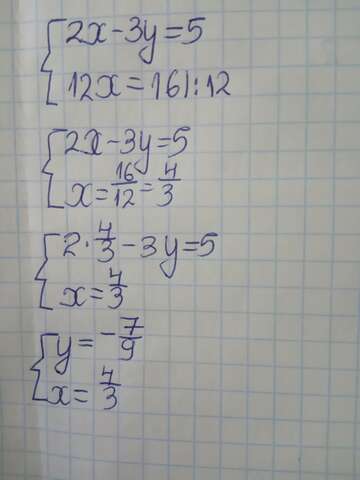 2x-3y=5
12x=16|:12
2x-3y=5
x=16/12=4/3
2·4/3-3y=5
x=4/3
y=-7/9
x=4/3